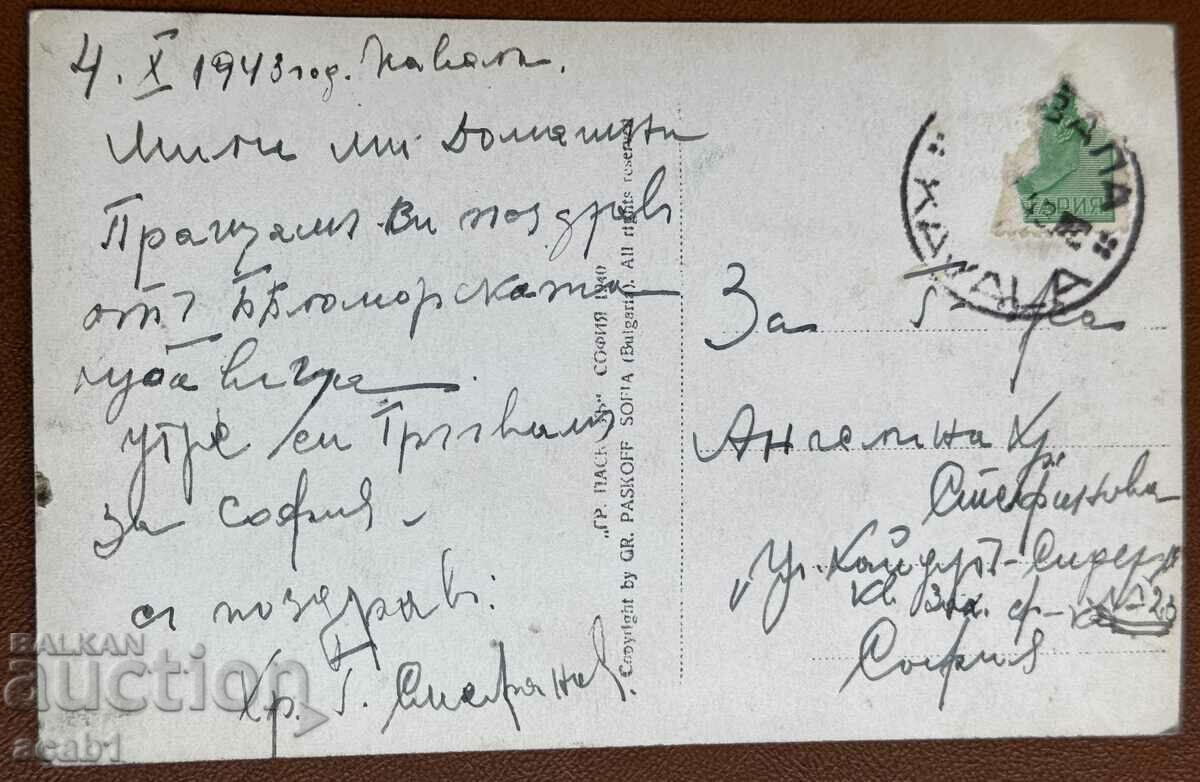 4. X 1943 год. Кавала.
Мили ми Домашни
Пращамъ Ви поздравъ
отъ Бѣломорската
хубавица
утре си Тръгвамъ
за София.
съ поздравъ:
Хр. Г. Стефановъ
"ГР. ПАСКОВЪ" СОФИЯ 1940
Copyright by GR. PASKOFF SOFIA (Bulgaria). All rights reserved
КАВАЛА
За Г-жа
Ангелина Хр.
Стефанова
Ул. Хайдутъ-Сидеръ
кв. Зах. ф-ка № 23
София
BALKAN
auction
acab1